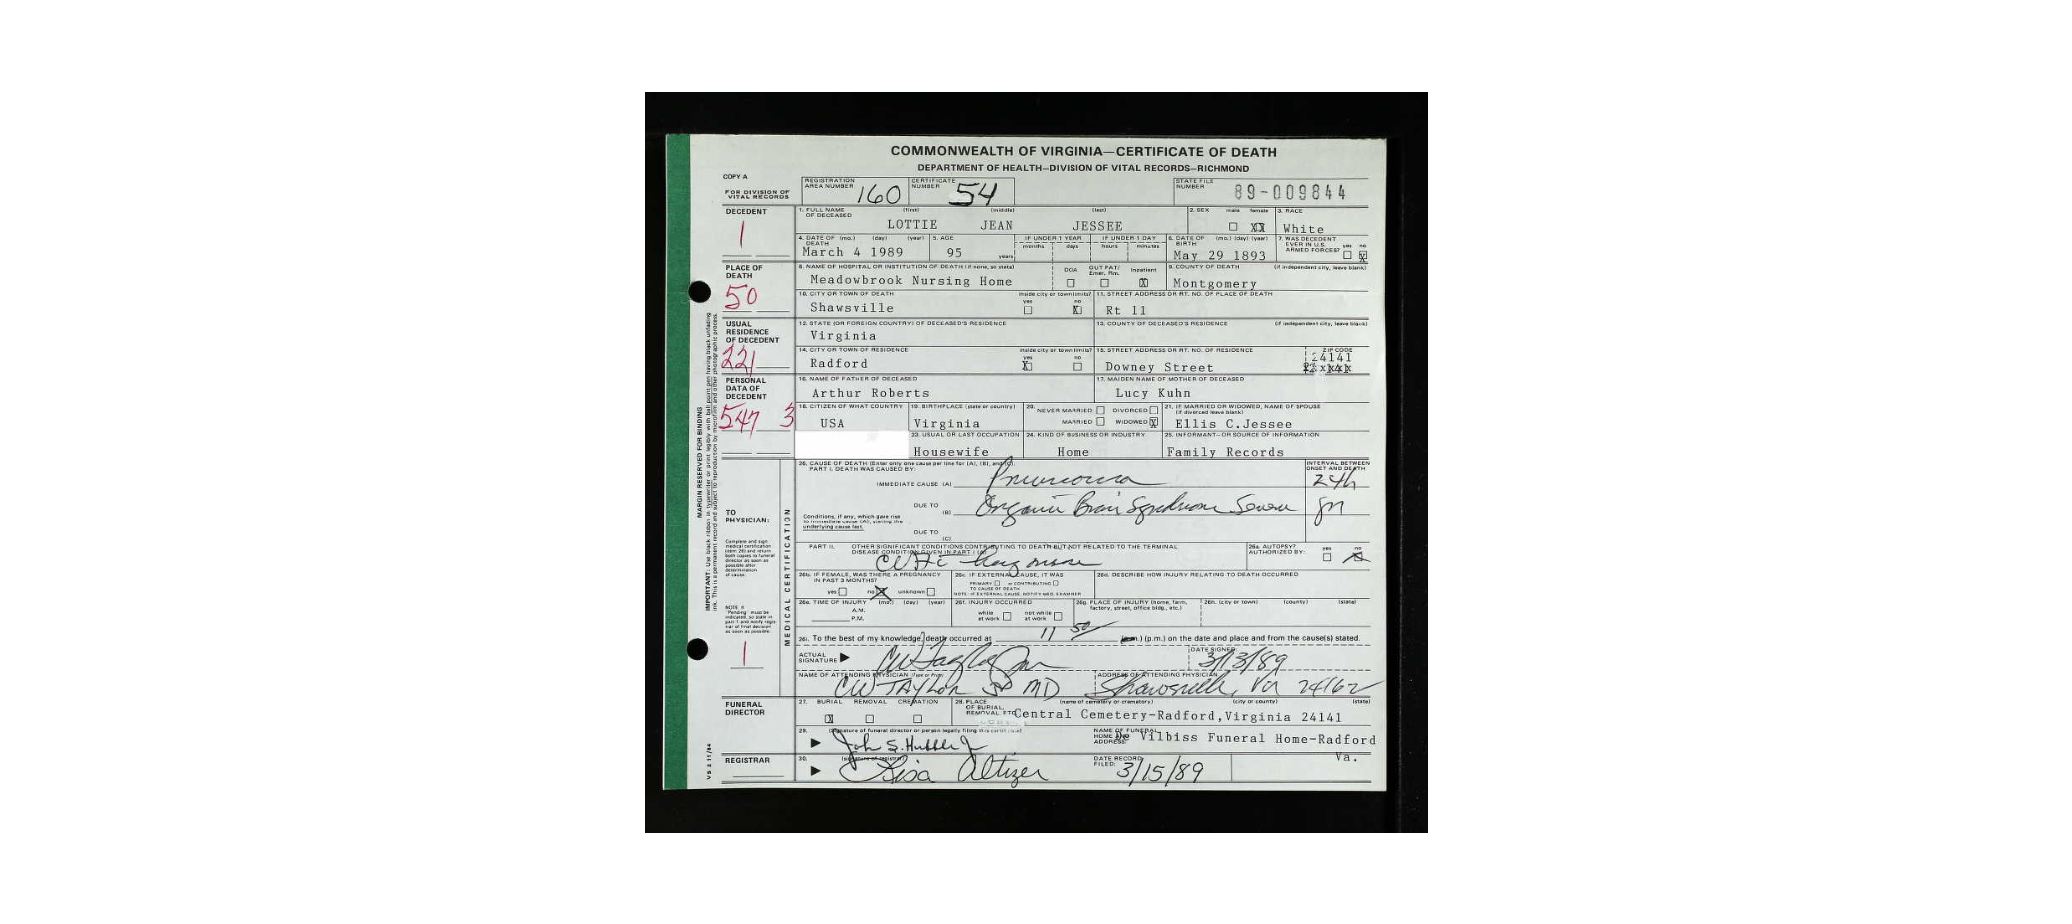 COMMONWEALTH OF VIRGINIA—CERTIFICATE OF DEATH
DEPARTMENT OF HEALTH—DIVISION OF VITAL RECORDS—RICHMOND
COPY A
FOR DIVISION OF VITAL RECORDS
REGISTRATION AREA NUMBER 160
CERTIFICATE NUMBER 54
STATE FILE NUMBER 89-009844
DECEDENT
1
1. FULL NAME OF DECEASED (first) (middle) (last)
LOTTIE JEAN JESSEE
2. SEX male female XX
3. RACE
White
4. DATE OF DEATH (mo.) (day) (year)
March 4 1989
5. AGE
95 years
IF UNDER 1 YEAR months days
IF UNDER 1 DAY hours minutes
6. DATE OF BIRTH (mo.) (day) (year)
May 29 1893
7. WAS DECEDENT EVER IN U.S. ARMED FORCES? yes no X
PLACE OF DEATH
50
8. NAME OF HOSPITAL OR INSTITUTION OF DEATH (if none, so state)
Meadowbrook Nursing Home
DOA OUT PAT/ Emer. Rm. Inpatient X
9. COUNTY OF DEATH (if independent city, leave blank)
Montgomery
10. CITY OR TOWN OF DEATH inside city or town limits? yes no X
Shawsville
11. STREET ADDRESS OR RT. NO. OF PLACE OF DEATH
Rt 11
USUAL RESIDENCE OF DECEDENT
221
12. STATE (OR FOREIGN COUNTRY) OF DECEASED'S RESIDENCE
Virginia
13. COUNTY OF DECEASED'S RESIDENCE (if independent city, leave blank)
14. CITY OR TOWN OF RESIDENCE inside city or town limits? yes X no
Radford
15. STREET ADDRESS OR RT. NO. OF RESIDENCE
Downey Street
ZIP CODE
24141
PERSONAL DATA OF DECEDENT
547 3
16. NAME OF FATHER OF DECEASED
Arthur Roberts
17. MAIDEN NAME OF MOTHER OF DECEASED
Lucy Kuhn
18. CITIZEN OF WHAT COUNTRY
USA
19. BIRTHPLACE (state or country)
Virginia
20. NEVER MARRIED DIVORCED
MARRIED WIDOWED X
21. IF MARRIED OR WIDOWED, NAME OF SPOUSE (if divorced leave blank)
Ellis C.Jessee
23. USUAL OR LAST OCCUPATION
Housewife
24. KIND OF BUSINESS OR INDUSTRY
Home
25. INFORMANT—OR SOURCE OF INFORMATION
Family Records
MARGIN RESERVED FOR BINDING
MEDICAL CERTIFICATION
26. CAUSE OF DEATH (Enter only one cause per line for (A), (B), and (C).
PART I. DEATH WAS CAUSED BY:
INTERVAL BETWEEN ONSET AND DEATH
IMMEDIATE CAUSE (A) Pneumonia 24h
DUE TO (B) Organic Brain Syndrome Severe yrs
Conditions, if any, which gave rise to immediate cause (A), stating the underlying cause last.
DUE TO (C)
PART II. OTHER SIGNIFICANT CONDITIONS CONTRIBUTING TO DEATH BUT NOT RELATED TO THE TERMINAL DISEASE CONDITION GIVEN IN PART I (A)
26a. AUTOPSY? AUTHORIZED BY: yes no X
TO PHYSICIAN:
Complete and sign medical certification (item 26) and return both copies to funeral director as soon as possible after determination of cause.
26b. IF FEMALE, WAS THERE A PREGNANCY IN PAST 3 MONTHS?
yes no X unknown
26c. IF EXTERNAL CAUSE, IT WAS
PRIMARY or CONTRIBUTING
TO CAUSE OF DEATH
NOTE: IF EXTERNAL CAUSE, NOTIFY MED. EXAMINER
26d. DESCRIBE HOW INJURY RELATING TO DEATH OCCURRED
26e. TIME OF INJURY (mo.) (day) (year)
A.M.
P.M.
26f. INJURY OCCURRED
while at work not while at work
26g. PLACE OF INJURY (home, farm, factory, street, office bldg., etc.)
26h. (city or town) (county) (state)
NOTE: If "Pending" must be indicated, so state in part 1 and notify registrar of final decision as soon as possible.
1
26i. To the best of my knowledge, death occurred at 11 50 (a.m.) (p.m.) on the date and place and from the cause(s) stated.
ACTUAL SIGNATURE CW Taylor Jr
DATE SIGNED 3/13/89
NAME OF ATTENDING PHYSICIAN (Type or Print)
CW TAYLOR JR MD
ADDRESS OF ATTENDING PHYSICIAN
Shawsville, Va 24162
FUNERAL DIRECTOR
27. BURIAL REMOVAL CREMATION
X
28. PLACE OF BURIAL, REMOVAL, ETC. (name of cemetery or crematory) (city or county) (state)
Central Cemetery-Radford,Virginia 24141
29. (signature of funeral director or person legally filing this certificate)
John S. Hubble Jr
NAME OF FUNERAL HOME AND ADDRESS:
De Vilbiss Funeral Home-Radford
Va.
REGISTRAR
30. (signature of registrar)
Lisa Altizer
DATE RECORD FILED: 3/15/89
VS 2 11/84